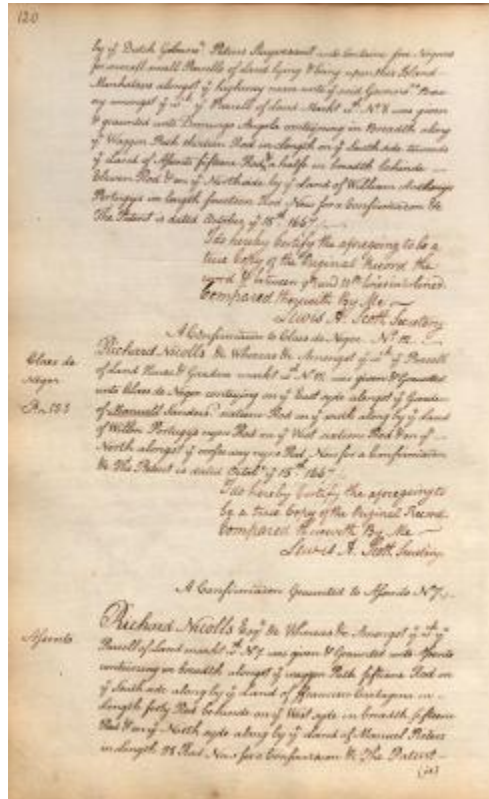 120
by ye Dutch Govern.r Peters Stuyvesant unto Certaine free Negroes
for severall small Parcells of Land lying & being upon this Island
Manhatans alongst ye highway neare unto ye said Govern.rs
amongst ye wch ye Parcell of Land Markt No 8 was given
& graunted unto Domingo Angola containing in Breadth along
ye Waggon Path thirteen Rod in Length on ye South side towards
ye Land of Assento fifteen Rod & a half in breadth behinde
Eleven Rod & on ye North side by ye Land of William Anthonys
Portugys in length fourteen Rod Now for a Confirmacon &c
The Patent is dated October ye 15th 1667
I do hereby Certify the aforegoing to be a
true Copy of the Original Record the
word ye between 9th and 10th lines interlined.
Compared therewith By Me
Lewis A. Scott Secretary
A Confirmacon to Claes de Neger No 12.
Claes de
Neger
Richard Nicolls &c Whereas &c Amongst ye wch ye Parcell
of Land House & Garden markt No 12 was given & Graunted
unto Claes de Neger containing on ye East syde alongst ye Garden
of Manuell Sanders sixteene Rod on ye south along by ye land
of Willem Portugys nyne Rod on ye West sixteene Rod & on ye
North alongst ye nyne Rod Now for a Confirmacon
&c The Patent is dated Octob.r ye 15th 1667
I do hereby Certify the aforegoing to
be a true Copy of the Original Record
Compared therewith By Me
Lewis A. Scott Secretary
A Confirmacon Graunted to Assento No 7.
Assento
Richard Nicolls Esqr &c Whereas &c Amongst ye wch ye
Parcell of Land markt No 7 was given & Graunted unto Assento
containing in breadth alongst ye waggon Path fifteene Rod on
ye South side along by ye Land of ffrancisco Cartagena in
Length forty Rod behinde on ye West syde in breadth fifteene
Rod & on ye North syde along by ye Land of Manuel Pieters
in length Rod Now for a Confirmacon &c The Patent
(is)